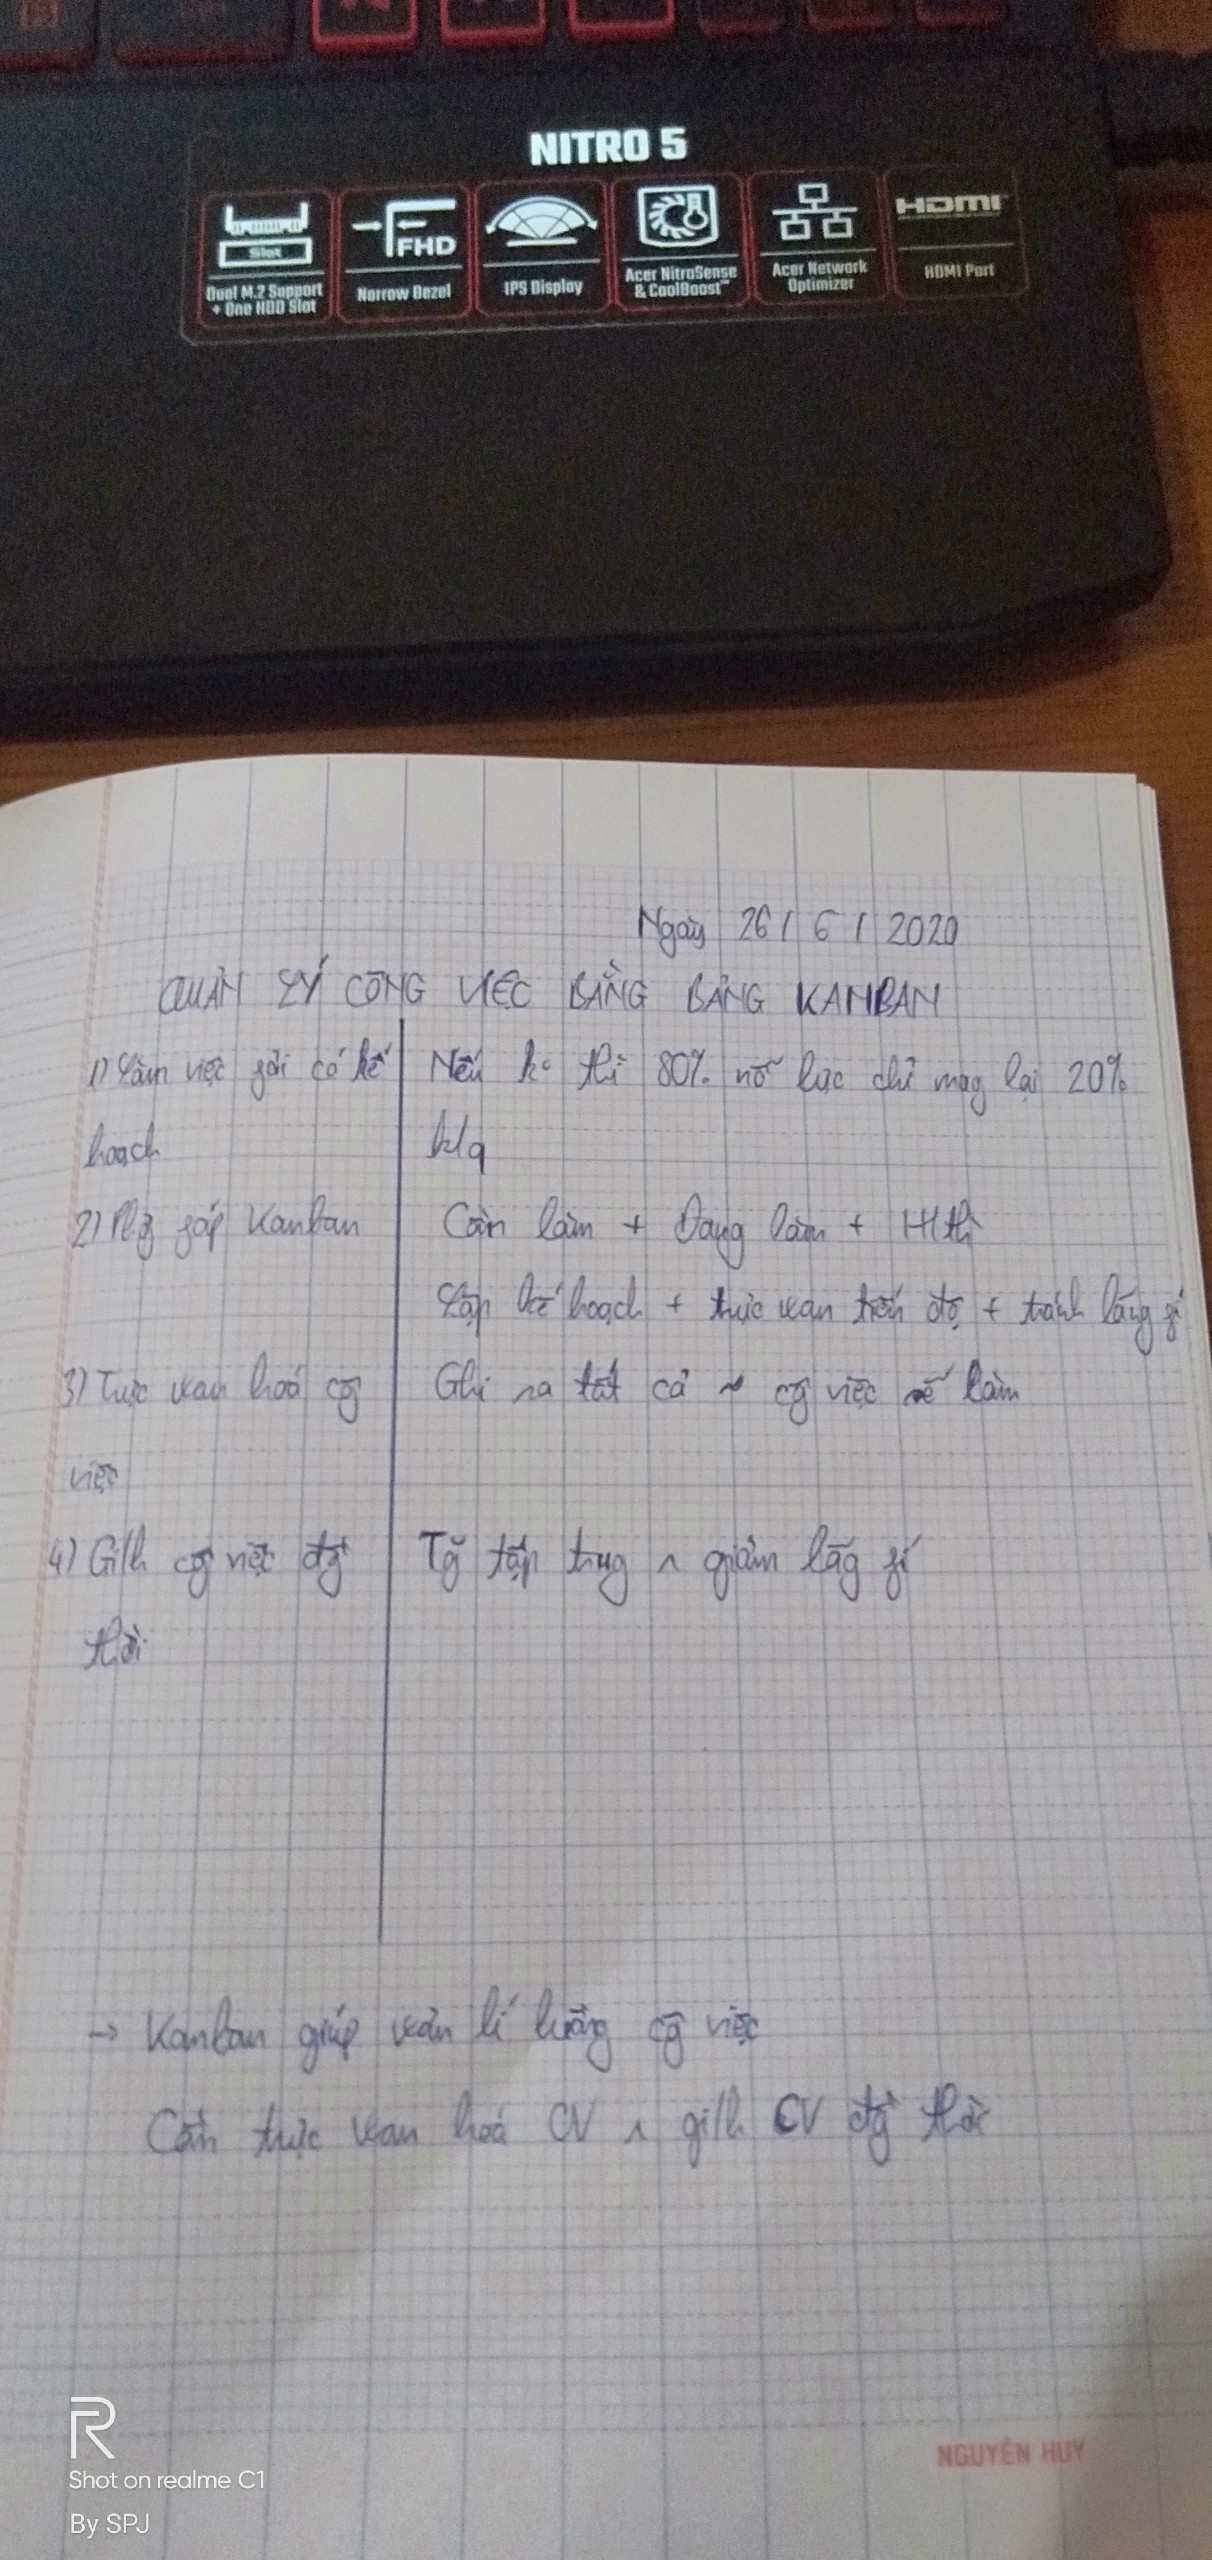 NITRO 5
Slot
Dual M.2 Support
+ One HDD Slot
FHD
Narrow Bezel
IPS Display
Acer NitroSense
& CoolBoost™
Acer Network
Optimizer
HDMI
HDMI Port
Ngày 26/6/2020
QUẢN LÝ CÔNG VIỆC BẰNG BẢNG KANBAN
1) Làm việc có kế
hoạch
Nếu ko thì 80% nỗ lực chỉ mag lại 20%
k/q
2) Kanban
Cần làm + Đang làm + H/th
Lập kế hoạch + trực wan tiến độ + tránh lãng fí
3) Trực wan hoá cg
việc
Ghi ra tất cả ~ cg việc sẽ làm
4) Gi/h cg việc đg
thời
Tg tập trug ^ giảm lãg fí
→ Kanban giúp wản lí luồng cg việc
Cần trực wan hoá CV ^ gi/h CV đg thời
NGUYÊN HUY
Shot on realme C1
By SPJ